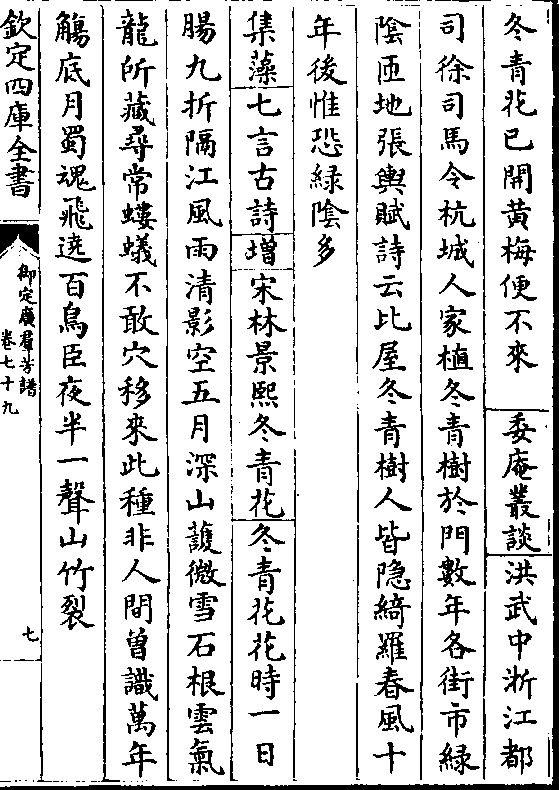 冬青花已開黄梅便不來　委庵叢談　洪武中浙江都
司徐司馬令杭城人家植冬青樹於門數年各街市緑
陰匝地張輿賦詩云比屋冬青樹人皆隠綺羅春風十
年後惟恐緑陰多
集藻　七言古詩　増　宋林景熙冬青花　冬青花花時一日
腸九折隔江風雨清影空五月深山䕶微雪石根雲氣
龍所藏尋常螻蟻不敢穴移來此種非人間曾識萬年
觴底月蜀魂飛遶百鳥臣夜半一聲山竹裂
欽定四庫全書
御定廣羣芳譜
卷七十九
七